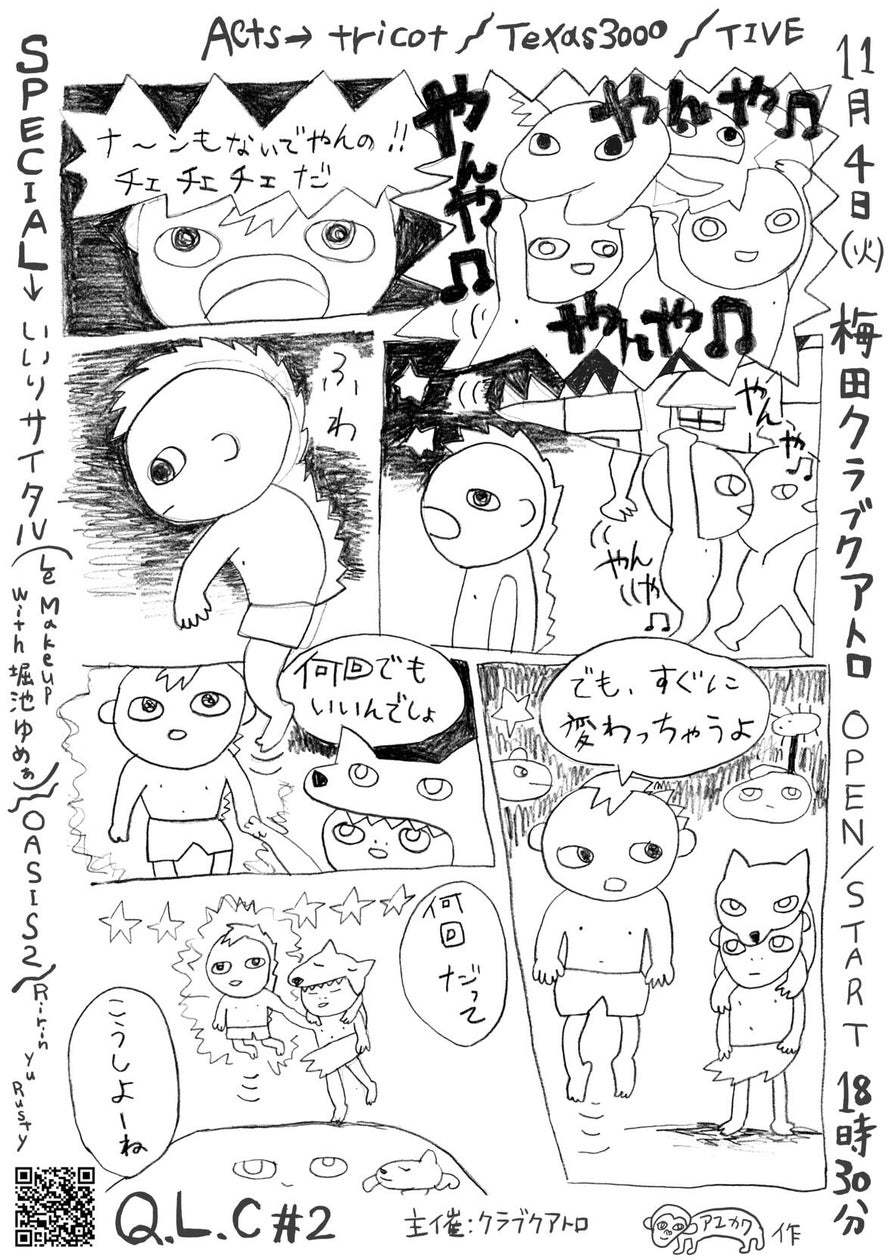 Acts→ tricot / Texas3000 / TIVE
11月4日(火) 梅田クラブクアトロ OPEN/START 18時30分
SPECIAL→ いいリサイタル(Le Makeup with 堀池ゆめぁ)/OASIS2/Ririn Yu Rusty
やんや♫
やんや♫
やんや♫
ナ〜ンもないでやんの!!
チェ チェ チェ だ
やんや♫
やんや♫
ふわ
でも、すぐに
変わっちゃうよ
何回でも
いいんでしょ
何回だって
こうしよーね
Q.L.C #2
主催:クラブクアトロ
アエカワ 作